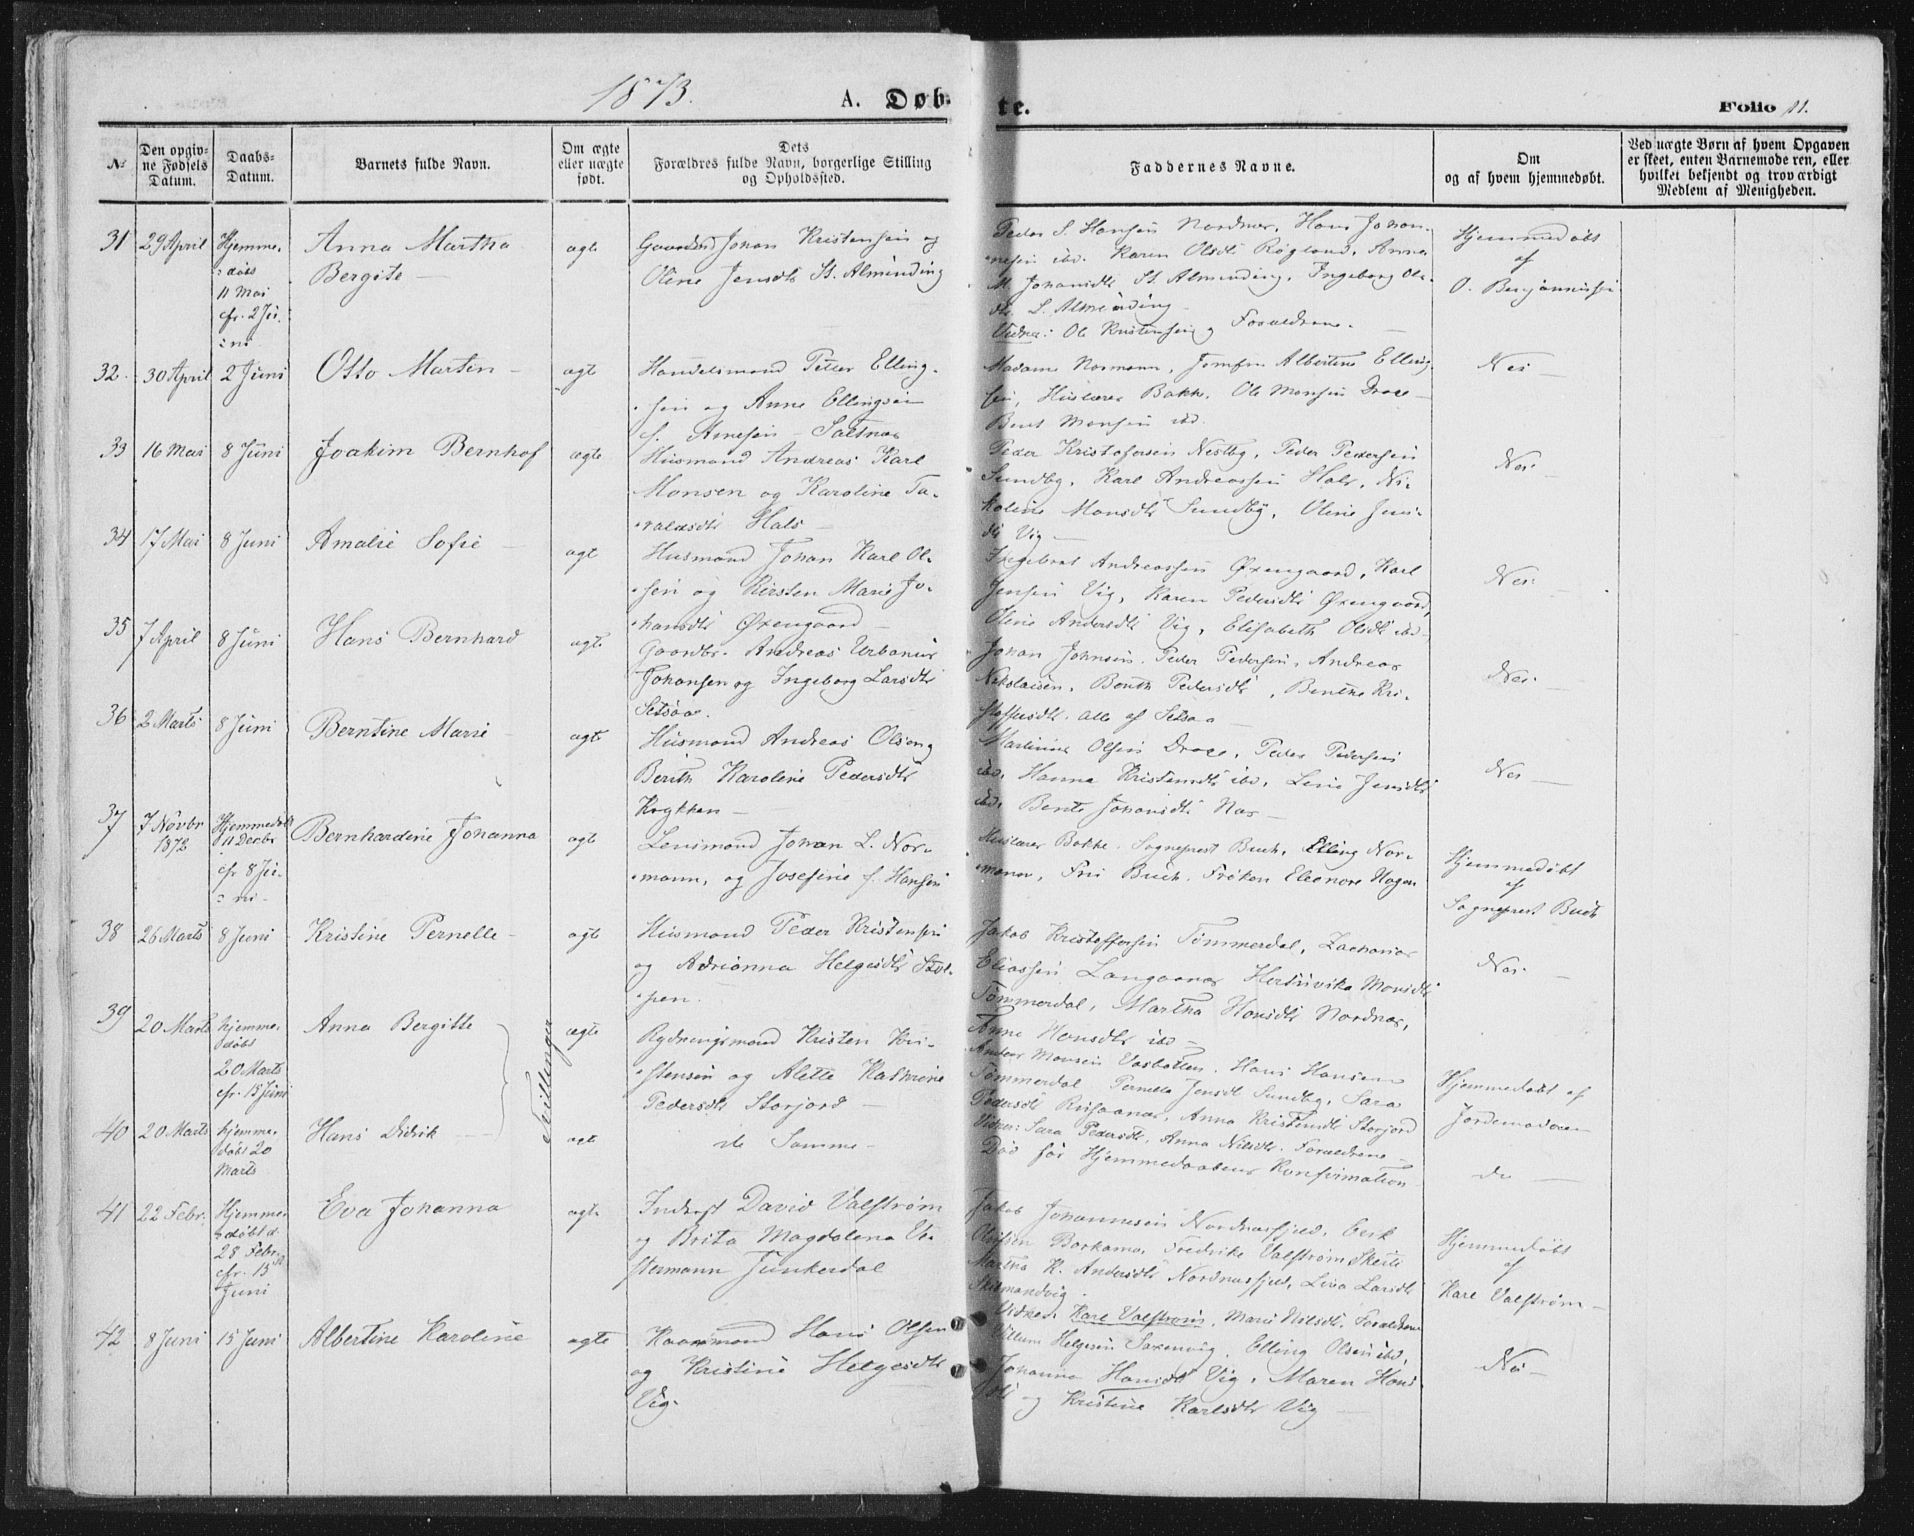 1873.
A. Døbte.
Folio 11.
№
Den opgivne Fødsels Datum.
Daabs-Datum.
Barnets fulde Navn.
Om ægte eller uægte født.
Dets Forældres fulde Navn, borgerlige Stilling og Opholdssted.
Faddernes Navne.
Om og af hvem hjemmedøbt.
Ved uægte Børn af hvem Opgaven er skeet, enten Barnemoderen, eller hvilket bekjendt og troværdigt Medlem af Menigheden.
31 29 April Hjemme-
døbt
11 Mai
cfr. 2 Ju-
ni
Anna Martha
Bergite —
ægte
Johan Kristensen og
Oline Jensdtr St. Alminding
Peder S. Hansen Nordnæs, Hans Johan-
nesen ibd. Karen Olsdtr Røgland, Anna
M Johansdtr St. Almending, Ingeborg Ols-
dtr L. Almending —
Vidner: Ole Kristensen og Forældrene. —
Hjemmedøbt
af
O. Benjaminsen
32. 30 April 2 Juni Otto Martin —
ægte
Handelsmand Petter Elling-
sen og Anne Ellingsen
f. Arnesen — Saltnæs
Madame Normann, Jomfru Albertine Elling-
sen, Huslærer Bakke, Ole Monsen Drage —
Bent Monsen ibd.
Nei —
33 16 Mai 8 Juni Joakim Bernhof
ægte
Husmand Andreas Karl
Monsen og Karoline Ta-
raldsdtr Hals —
Peder Kristofersen Nestby, Peder Pedersen
Sundby, Karl Andreassen Hals, Ni-
koline Monsdtr Sundby, Oline Jens-
dtr Vig —
Nei —
34 17 Mai 8 Juni Amalie Sofie —
ægte
Husmand Johan Karl Ol-
sen og Kirsten Marie Jo-
hansdtr Øxengaard —
Ingebrot Andreassen Øxengaard, Karl
Jensen Vig, Karen Pedersdtr Øxengaard,
Oline Andersdtr Vig, Elisabeth Olsdtr ibd —
Nei —
35 7 April 8 Juni Hans Bernhard
ægte
Gaardbr. Andreas Urbanus
Johansen og Ingeborg Larsdtr
Setsaa.
Johan Johnsen, Peder Pedersen, Andreas
Nikolaisen, Benth Pedersdtr, Benthe Kri-
stoffersdtr. alle af Setsaa —
Nei —
36 2 Marts 8 Juni Berntine Marie —
ægte
Husmand Andreas Olsen og
Berith Karoline Pedersdtr
Krykken —
Martinus Olsen Drage, Peder Pedersen
ibd, Hanna Kristensdtr ibd, Lene Jensdtr
ibd, Bente Johansdtr Næs —
Nei —
37 7 Novbr
1872
Hjemmedøbt
11 Decbr
cfr 8 Ju-
ni —
Bernhardine Johanna
ægte
Lensmand Johan L. Nor-
mann, og Josefine f. Hansen
Huslærer Bakke, Sogneprest Buch, Elling Nor-
mann, Fru Buch, Frøken Eleonore Hagen
Hjemmedøbt
af
Sogneprest Buch
38 26 Marts 8 Juni Kristine Pernelle —
ægte
Husmand Peder Kristensen
og Adrianna Helgesdtr Stol-
pen.
Jakob Kristoffersen Tømmerdal, Zacharias
Eliassen Langaanæs Hertinvika Monsdtr
Tømmerdal, Martha Hansdtr Nordnæs,
Anne Hansdtr ibd —
Nei —
39 20 Marts hjemme-
døbt
20 Marts
cfr. 15 Juni
Anna Bergitte
Tvillinger
ægte
Rydningsmand Kristen Kri-
stensen og Alette Kathrine
Pedersdtr Storjord —
Anders Monsen Vasbotten, Hans Hansen
Tømmerdal Pernella Jensdtr Sundby, Sara
Pedersdtr Rusaanæs, Anna Kristensdtr Storjord
Vidner: Sara Pedersdtr, Anna Nilsdtr. Forældrene —
Hjemmedøbt af
Jordemoderen
40 20 Marts hjemme-
døbt 20
Marts
Hans Didrik —
ægte
de Samme —
Død før Hjemmedaabens Konfirmation
do —
41 22 Febr. Hjemme-
døbt d.
28 Febr.
cfr. 15
Juni
Eva Johanna
ægte
Inderst David Valstrøm
og Brita Magdalena Ve-
stermann Junkerdal
Jakob Johannesen Nordnæsfjeld, Eerk
Olsen Borkamo, Fredrike Valstrøm Skeiti
Martha K. Andersdtr Nordnæsfjeld, Lisa Larsdtr
Skilmandvig.
Vidner: Karl Valstrøm, Marie Nilsdtr, Forældrene
Hjemmedøbt
af
Karl Valstrøm —
42 8 Juni 15 Juni Albertine Karoline
ægte
Kaarmand Hans Olsen
og Kristine Helgesdtr
Vig.
Villum Helgesen Saxenvig, Elling Olsen ibd,
Johanna Hansdtr Vig, Maren Hans-
dtr og Kristine Karlsdtr Vig —
Nei —